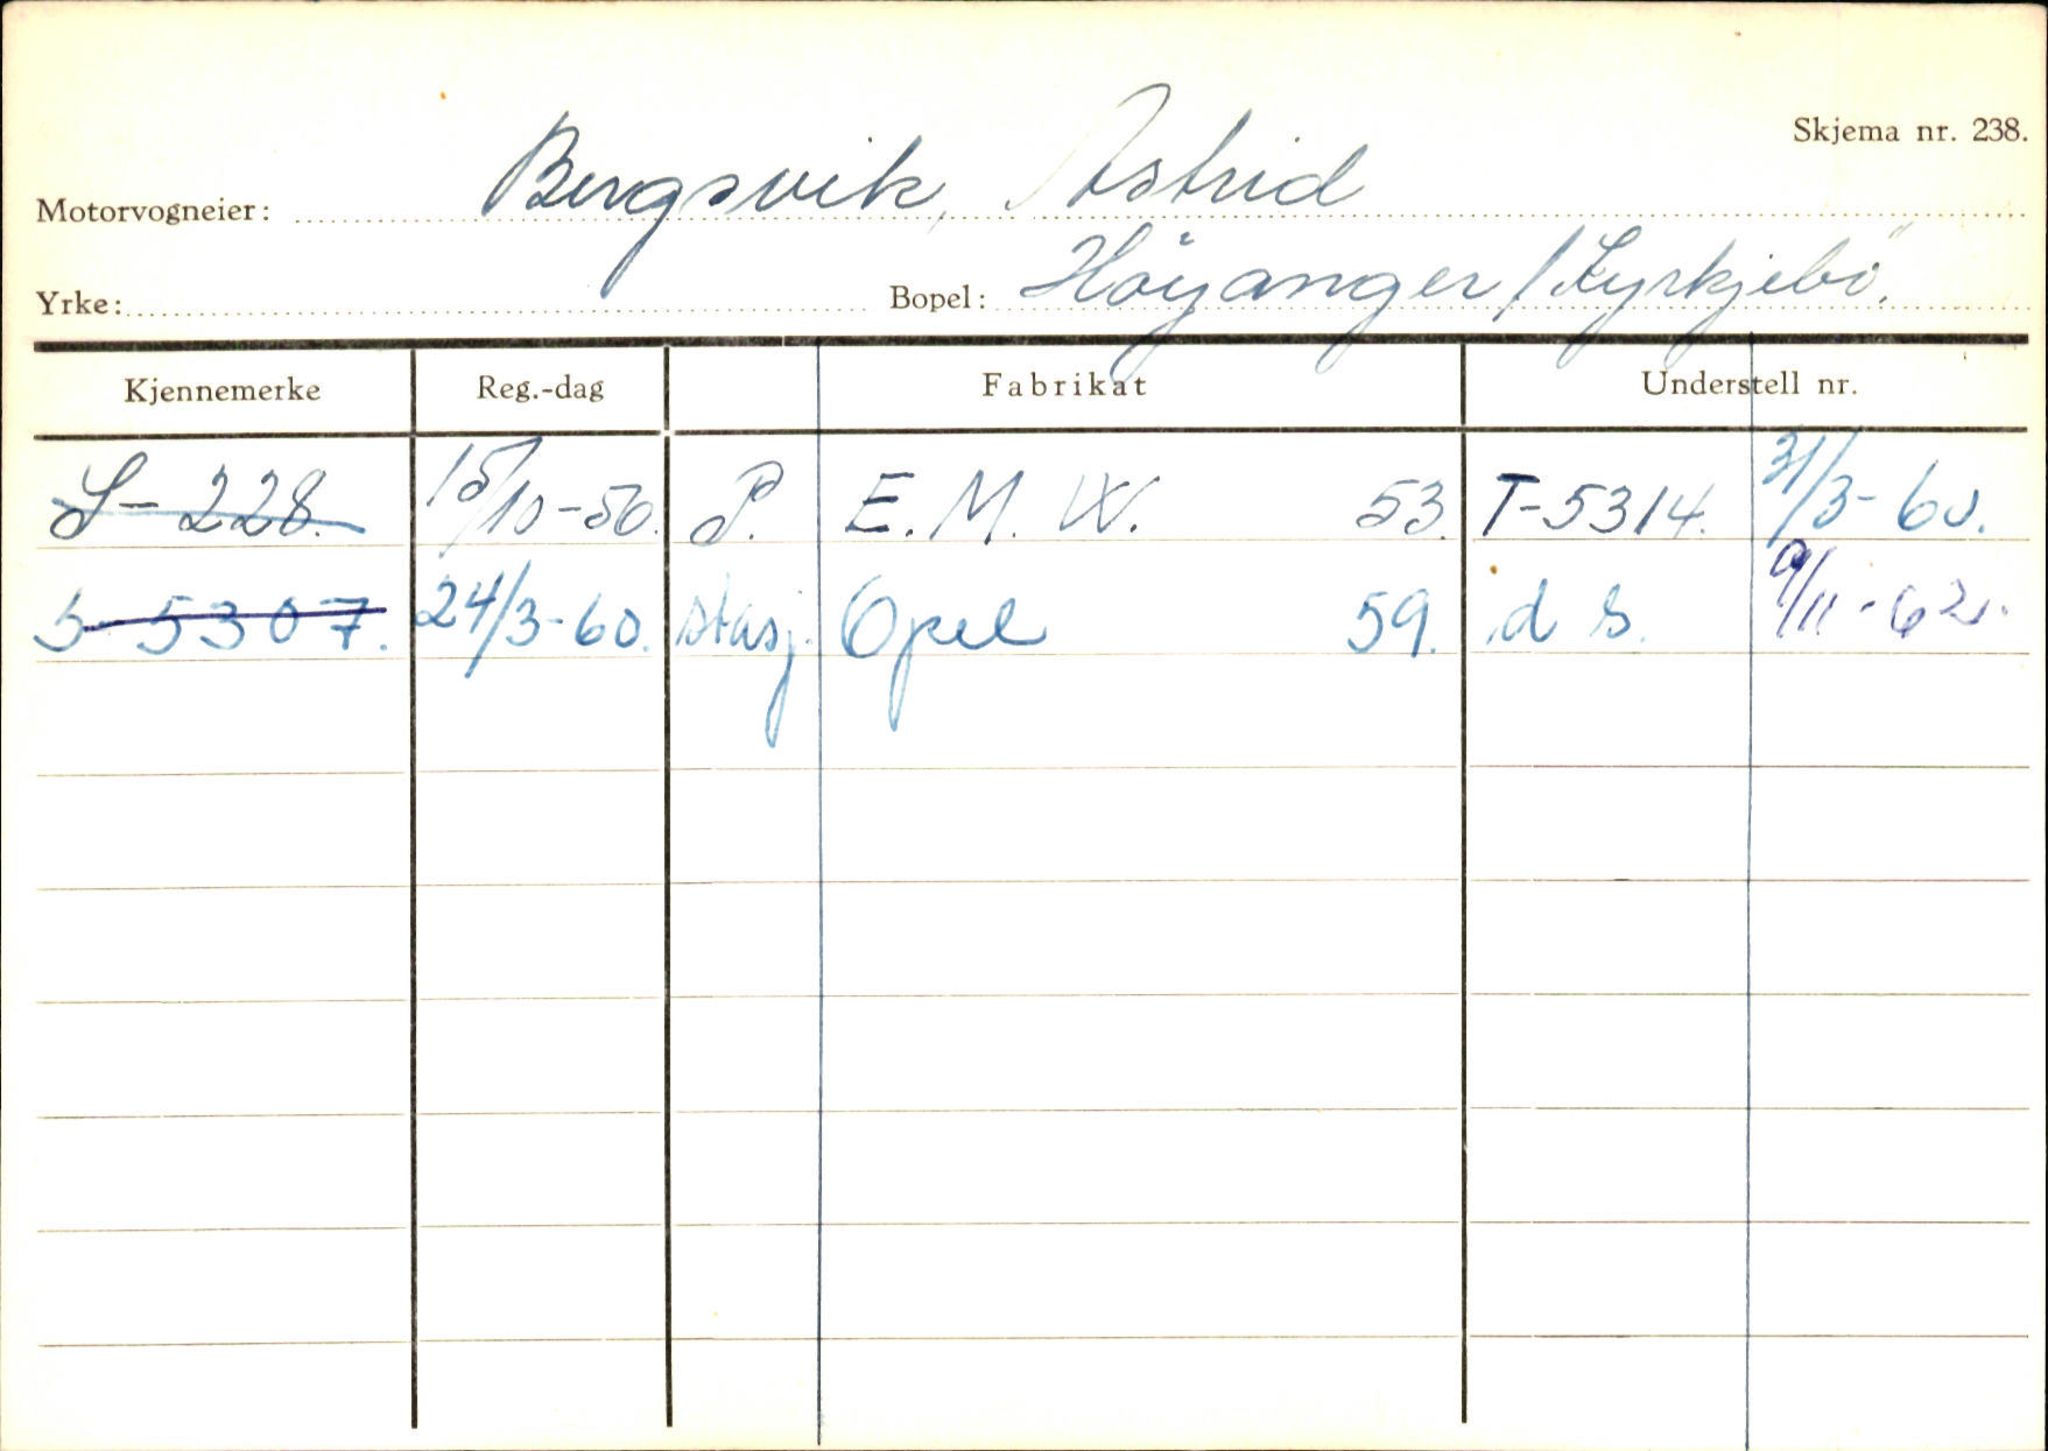 Skjema nr. 238.
Motorvogneier: Bergsvik, Astrid
Yrke: Bopel: Höyanger / Kyrkjebö.
Kjennemerke Reg.-dag Fabrikat Understell nr.
S-228. 15/10-56. P. E. M. W. 53. T-5314. 31/3-60.
S-5307. 24/3-60. stasj. Opel 59. d s. 9/11-62.